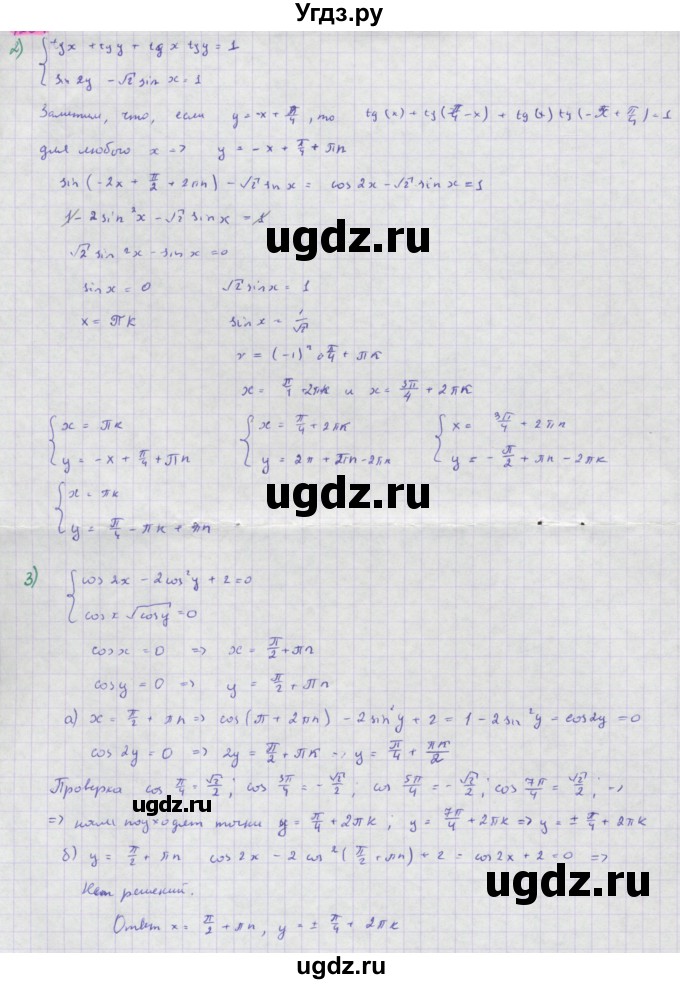 Угдз.ру
2) { tg x + tg y + tg x tg y = 1
sin 2y - √2 sin x = 1
Заметим, что, если y = -x + π/4, то tg(x) + tg(π/4 - x) + tg(x) tg(-x + π/4) = 1
для любого x => y = -x + π/4 + πn
sin(-2x + π/2 + 2πn) - √2 sin x = cos 2x - √2 sin x = 1
1 - 2 sin²x - √2 sin x = 1
√2 sin²x - sin x = 0
sin x = 0 √2 sin x = 1
x = πk sin x = 1/√2
x = (-1)ⁿ π/4 + πk
x = π/4 + 2πk и x = 3π/4 + 2πk
{ x = πk { x = π/4 + 2πk { x = 3π/4 + 2πn
y = -x + π/4 + πn y = 2π + 2πn - 2πn y = -π/2 + πn - 2πk
{ x = πk
y = π/4 - πk + πn
3) { cos 2x - 2cos²y + 2 = 0
cos x √cos y = 0
cos x = 0 => x = π/2 + πn
cos y = 0 => y = π/2 + πn
а) x = π/2 + πn => cos(π + 2πn) - 2sin²y + 2 = 1 - 2sin²y - cos2y = 0
cos 2y = 0 => 2y = π/2 + πk -> y = π/4 + πk/2
Проверка cos π/4 = √2/2; cos 3π/4 = -√2/2; cos 5π/4 = -√2/2; cos 7π/4 = √2/2; =>
=> нам подходят точки y = π/4 + 2πk, y = 7π/4 + 2πk => y = ± π/4 + 2πk
б) y = π/2 + πn cos 2x - 2 cos²(π/2 + πn) + 2 = cos 2x + 2 = 0 =>
Нет решений.
Ответ x = π/2 + πn, y = ± π/4 + 2πk
ugdz.ru
ugdz.ru
ugdz.ru
ugdz.ru
ugdz.ru
ugdz.ru
ugdz.ru